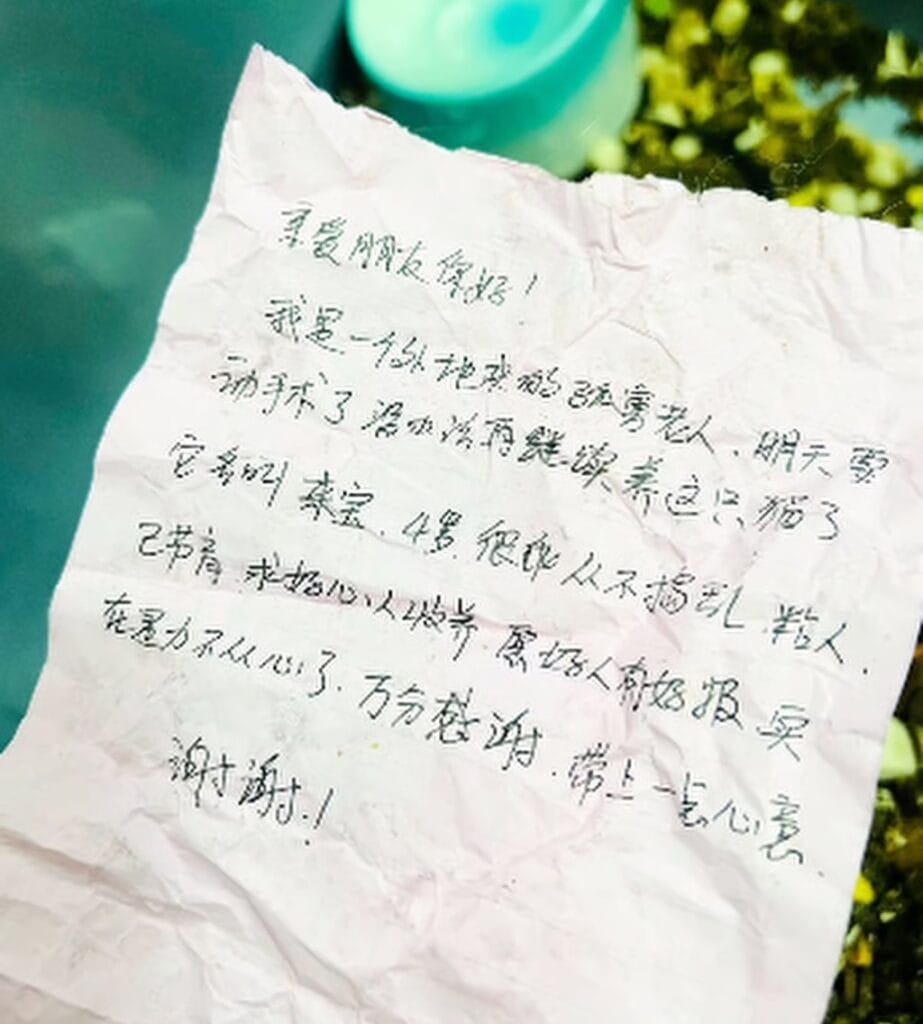 亲爱朋友你好！
我是一个外地来的孤寡老人，明天要
动手术了没办法再继续养这只猫了
它名叫来宝，4岁，很乖从不捣乱，粘人，
已节育，求好心人收养，愿好人有好报，实
在是力不从心了，万分感谢，带上一点心意，
谢谢！